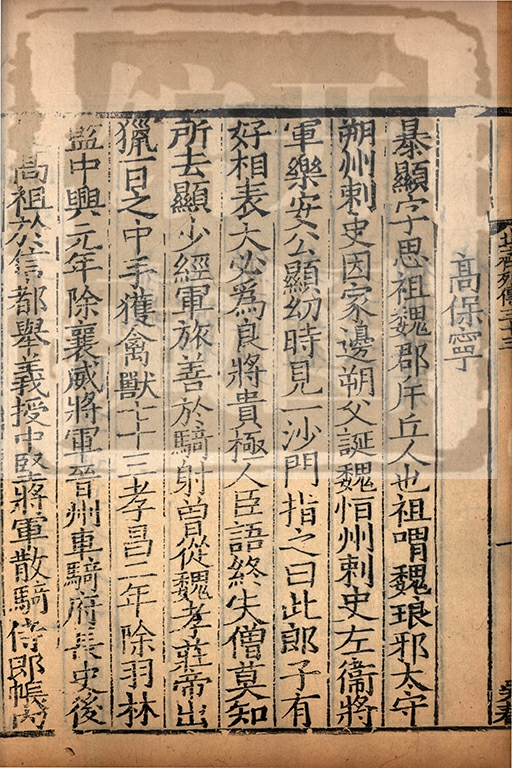 北齊列傳三十三
一
高保寧
暴顯字思祖魏郡斥丘人也祖喟魏琅邪太守
朔州刺史因家邊朔父誕魏恒州刺史左衞將
軍樂安公顯幼時見一沙門指之曰此郎子有
好相表大必爲良將貴極人臣語終失僧莫知
所去顯少經軍旅善於騎射曽從魏孝莊帝出
獵一日之中手獲禽獸七十三孝昌二年除羽林
監中興元年除襄威將軍晉州車騎府長史後
高祖於信都舉義授中堅將軍散騎侍郎帳内